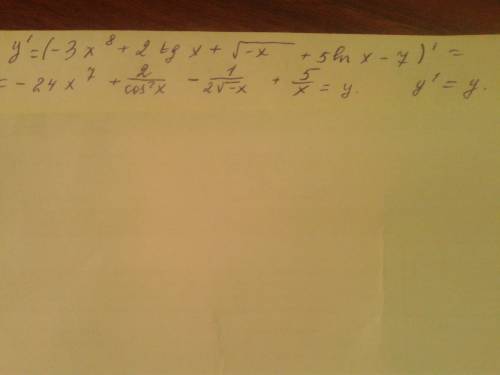 y' = (-3x⁸ + 2 tg x + √-x + 5 ln x - 7)' =
= -24x⁷ + 2/cos²x - 1/2√-x + 5/x = y. y' = y.